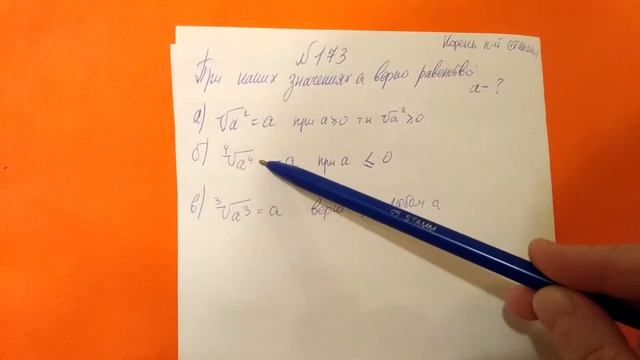 Корень n-й степени
№173
При каких значениях a верно равенство
a - ?
а) √a² = a при a ≥ 0 т.к √a² ≥ 0
б) ⁴√a⁴ = a при a ≤ 0
в) ³√a³ = a верно любом a
STAMM